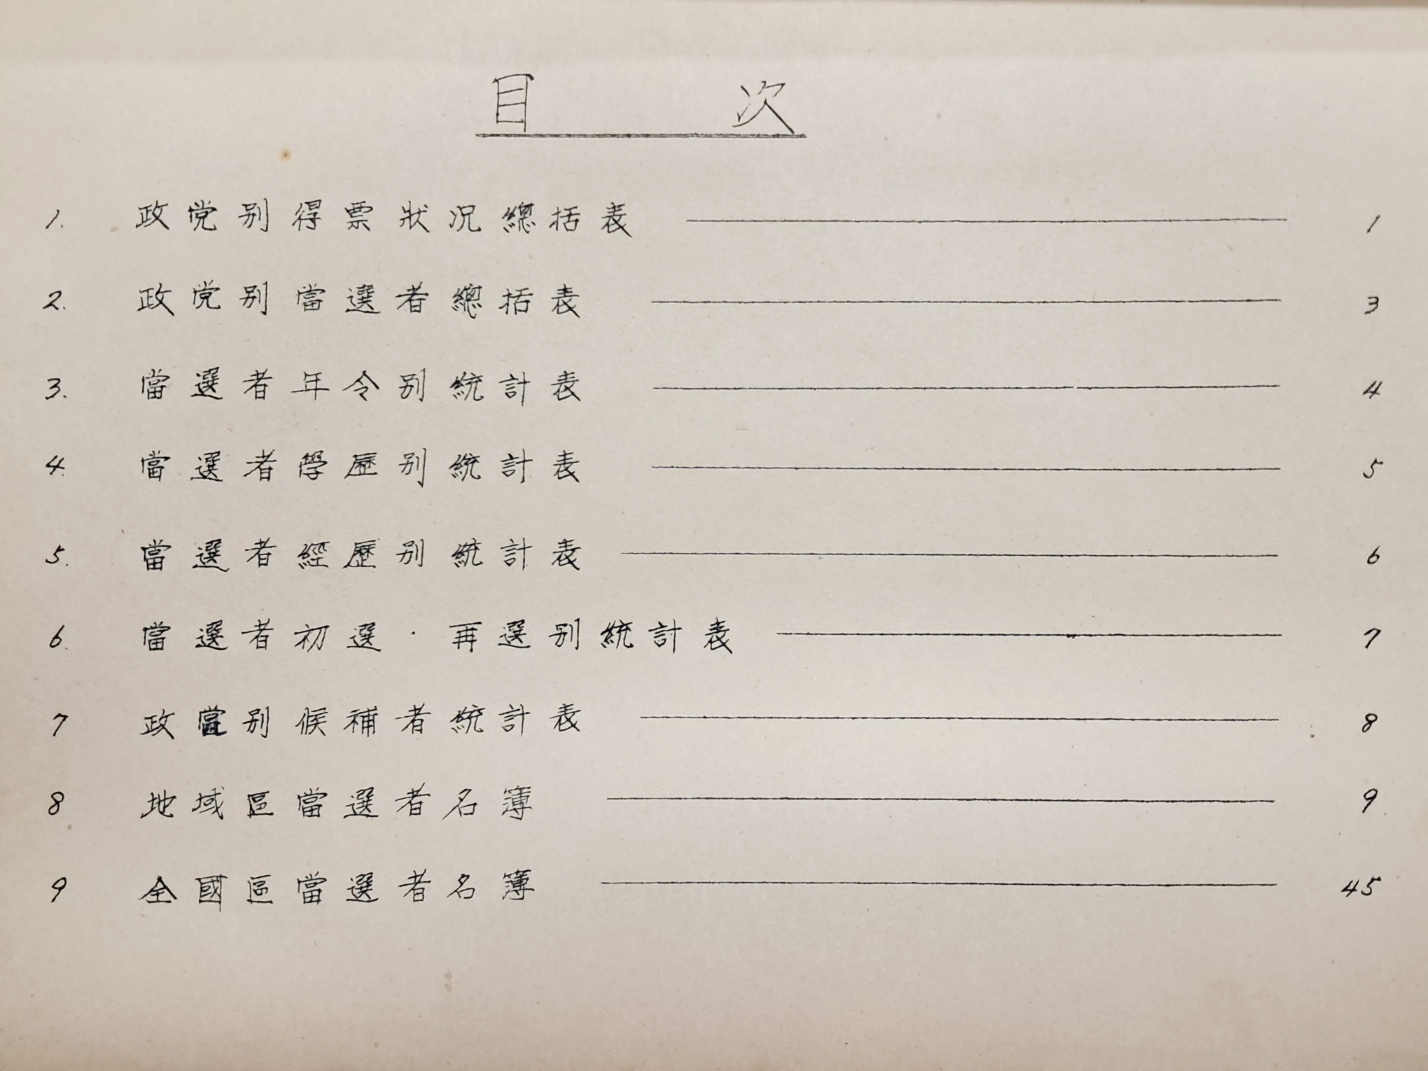 目 次
1. 政党别得票狀況總括表 1
2. 政党别當選者總括表 3
3. 當選者年令别統計表 4
4. 當選者學歷别統計表 5
5. 當選者經歷别統計表 6
6. 當選者初選・再選别統計表 7
7 政當别候補者統計表 8
8 地域區當選者名簿 9
9 全國區當選者名簿 45